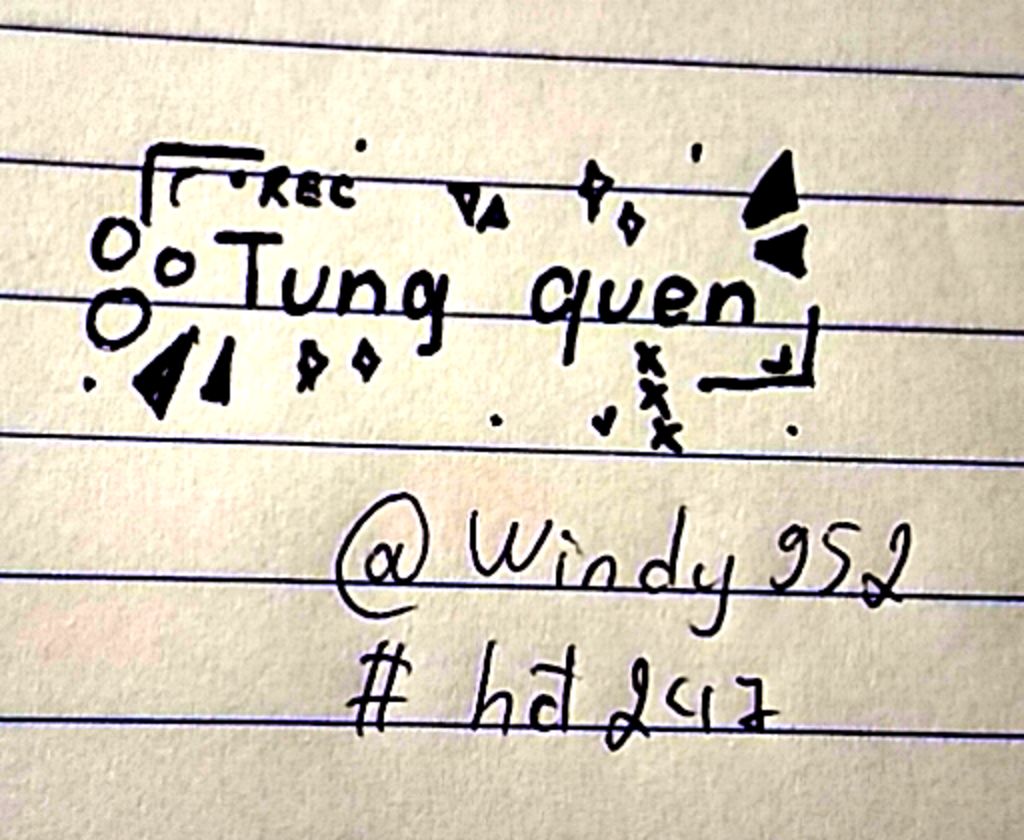 REC
Tung quen
@Windy952
#hđ247